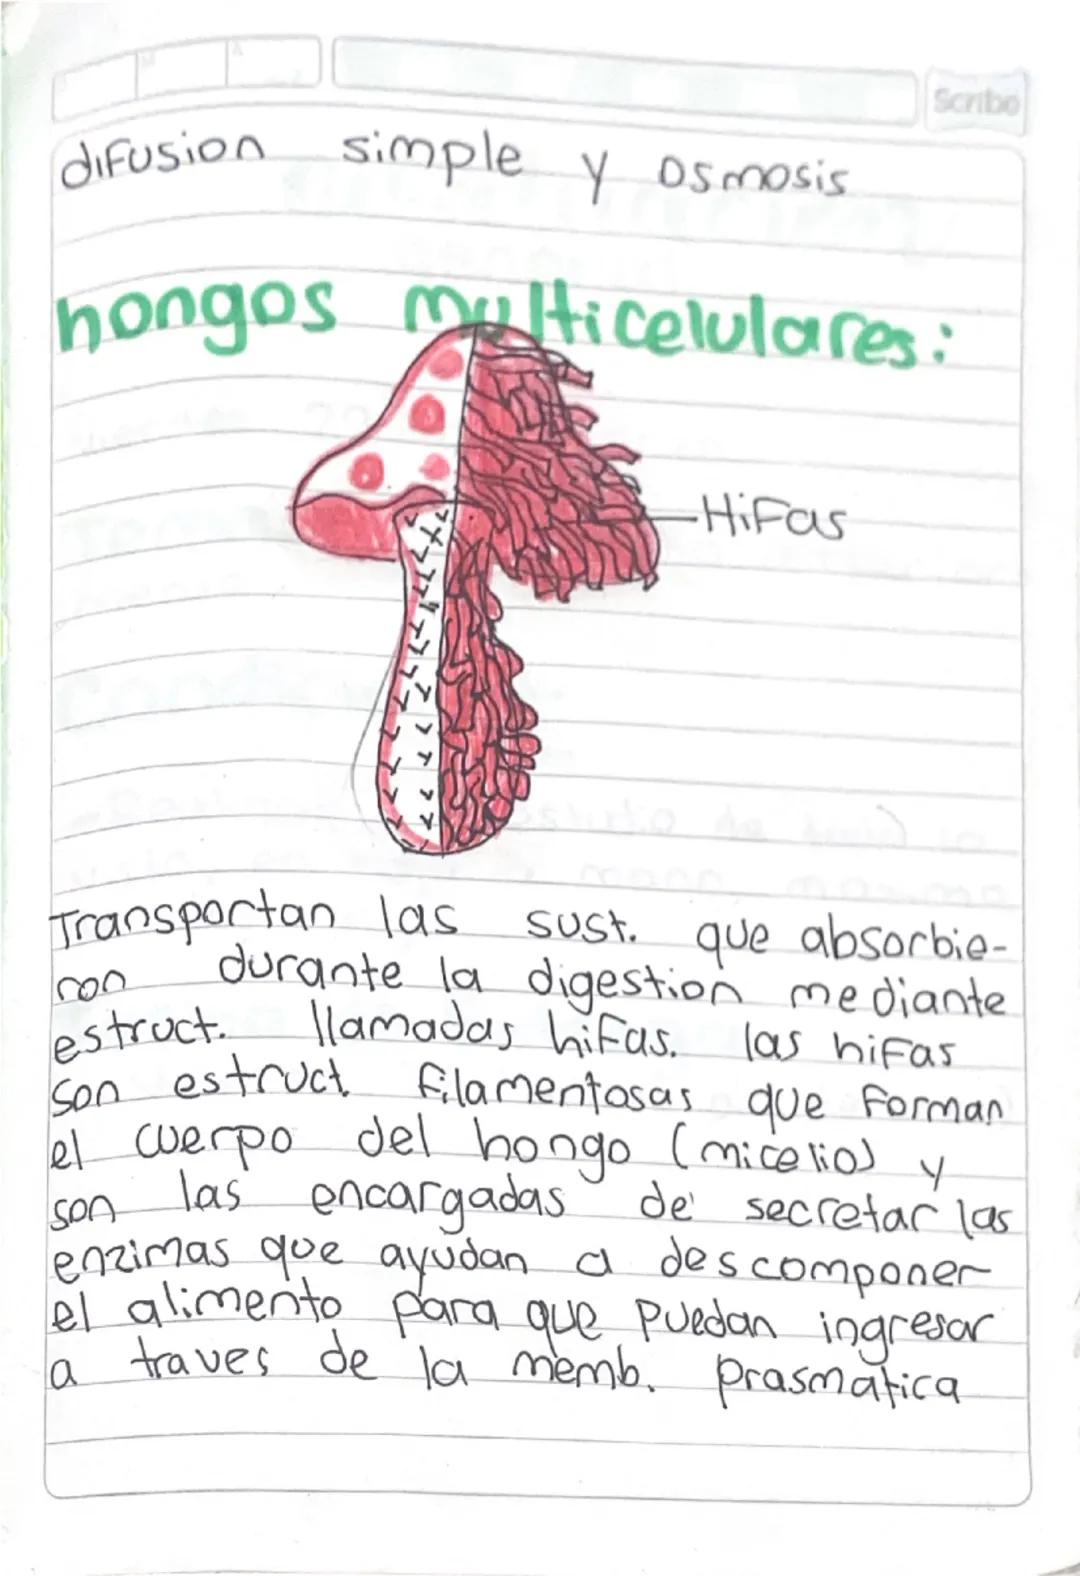 Scribe
difusion simple y osmosis
hongos multicelulares:
Hifas
Transportan las sust. que absorbie-
ron durante la digestion mediante
estruct. llamadas hifas. las hifas
son estruct. filamentosas que forman
el cuerpo del hongo (micelio) y
son las encargadas de secretar las
enzimas que ayudan a descomponer
el alimento para que puedan ingresar
a traves de la memb. prasmatica